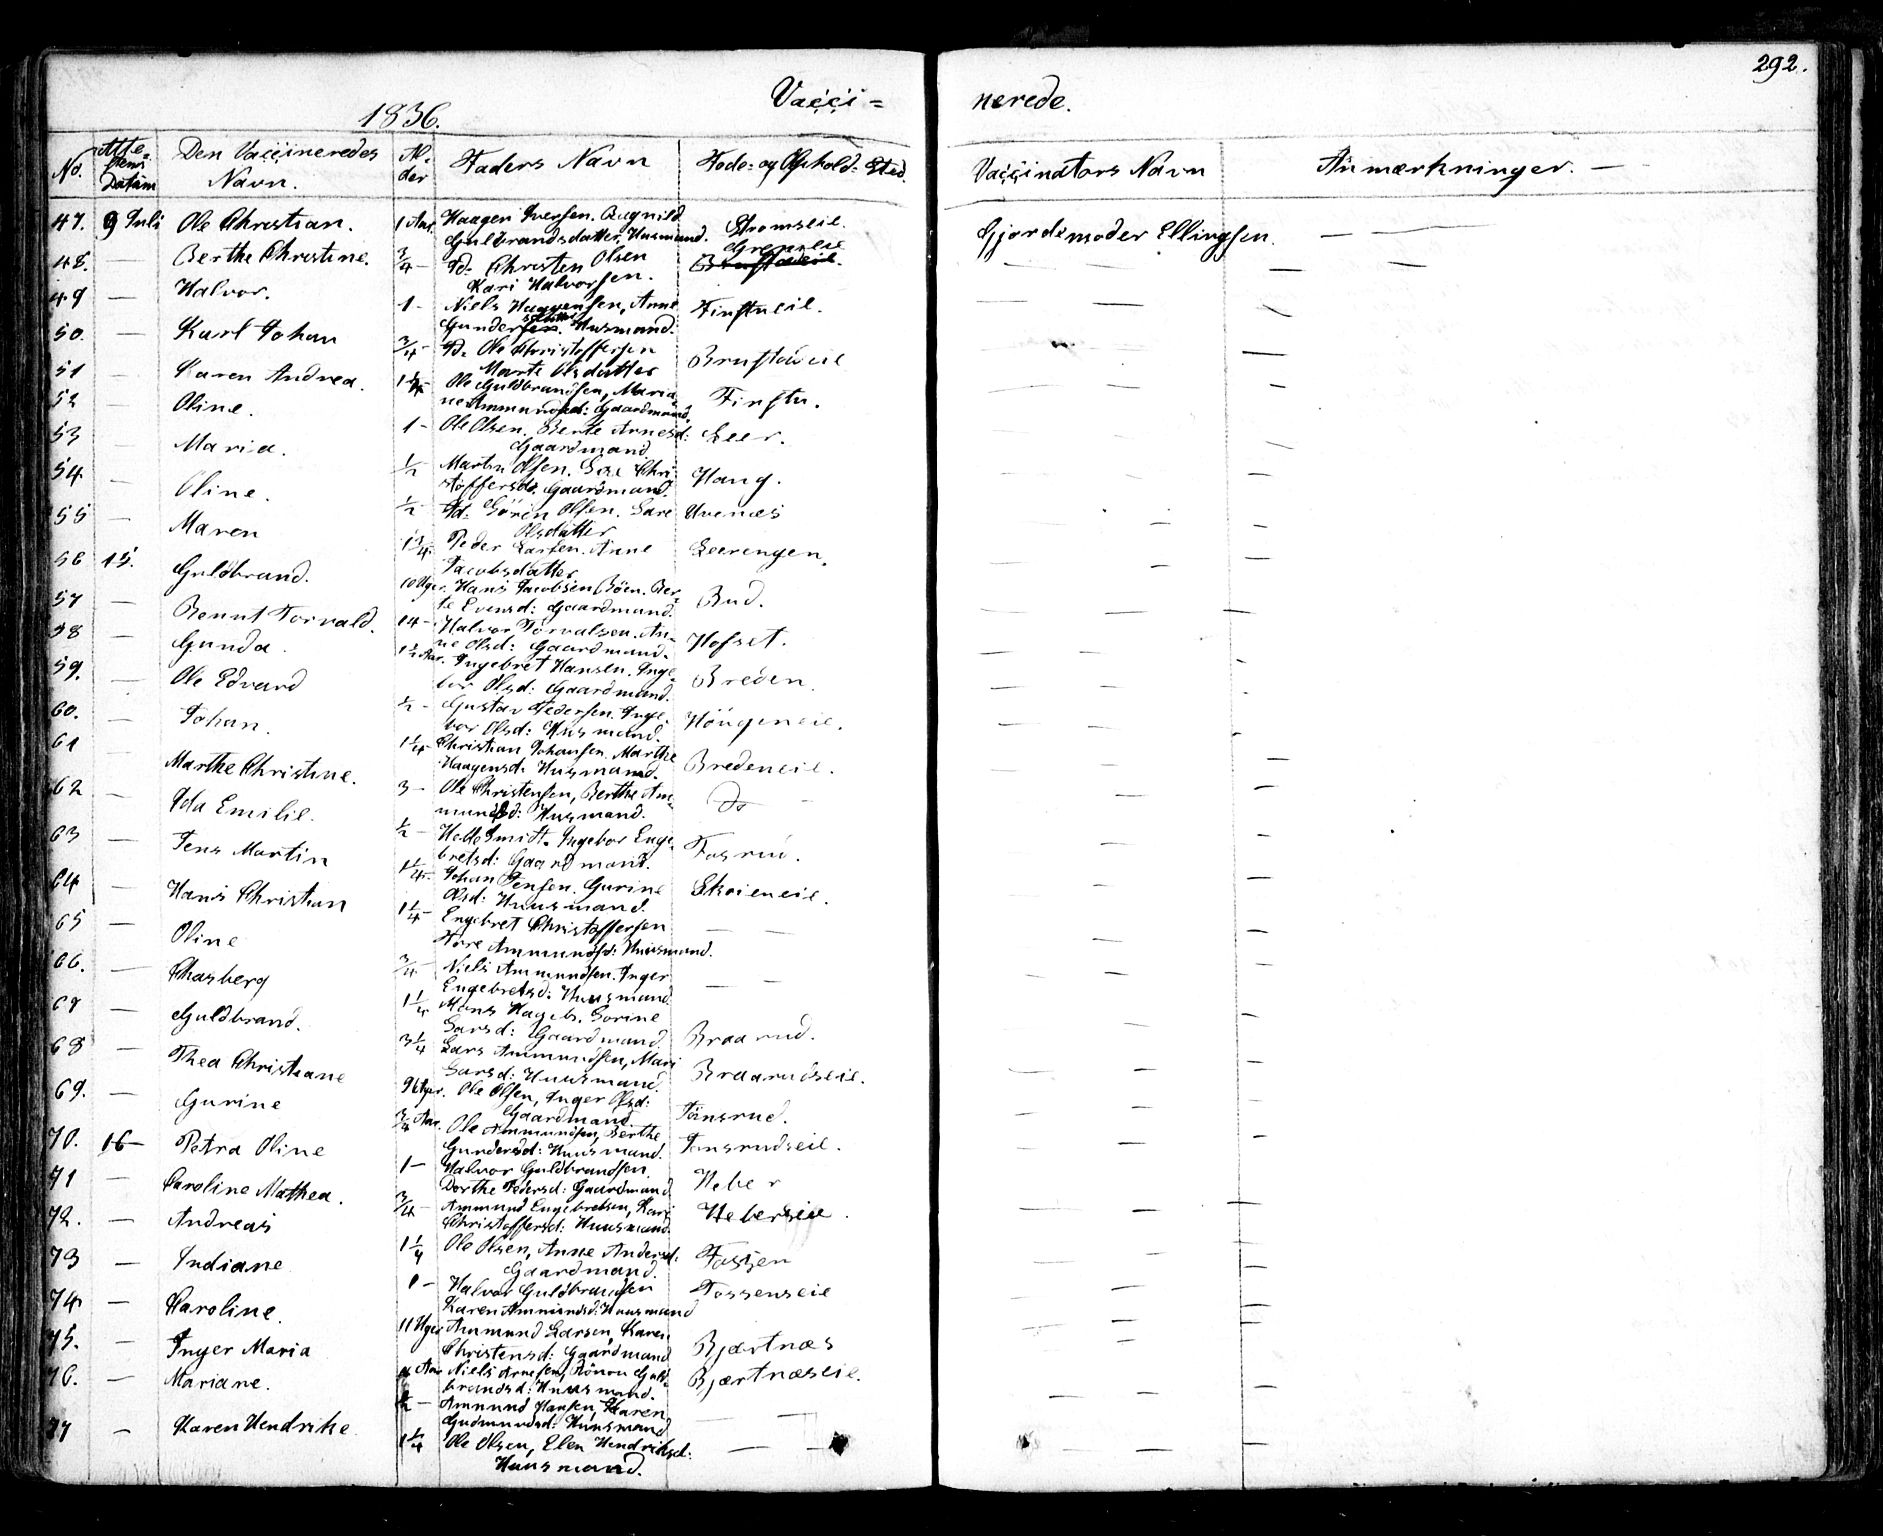 292.
Vacci=
nerede.
1836.
No. Atte-stens Datum Den Vaccineredes Navn. Al-der Faders Navn Føde- og Ophold-Sted. Vaccinators Navn Anmærkninger. —
47. 9 Juli Ole Christian. 1 Aar. Haagen Iversen. Ragnild Strømseie. Gjordemoder Ellingsen. — —
Gulbrandsdatter, Husmand.
48. — Berthe Christine. 3/4 — Id: Christen Olsen Grenseie
Kari Halvorsen.
49 — Halvor. 1 - Niels Haagensen, Anne Finstueie.
Gundersdatter. Husmand.
50. — Karl Johan 3/4 - Id. Ole Christoffersen Brustadeie
Marte Olsdatter
51 — Karen Andrea. 1 1/4 - Ole Guldbrandsen, Maria- Finstu.
ne Ammundsd: Gaardmand.
52 — Oline. 1 - Ole Olsen. Berte Arnesd: Leer.
Gaardmand
53 — Maria. 1/2 - Martin Olsen. Chri- Haug.
stoffersd. Gaardmand.
54. — Oline. 1/2 - Id: Sören Olsen. Uvenæs
Olsdatter
55 — Maren 1 3/4. Peder Larsen. Anne Leerengen.
Jacobsdatter
56 15. Guldbrand. 10 Uger. Hans Jacobsen Böen. Ber- Bud.
te Evensd: Gaardmand.
57 — Bennt Torvald. 14 - Halvor Torvalsen. An- Hofset.
ne Olsd: Gaardmand.
58 — Gunda. 1 1/2 Aar. Ingebret Hansen. Inge- Breden.
bor Olsd: Gaardmand.
59. — Ole Edvard 1/2 - Gustav Pedersen. Inge- Höugeneie.
bor Olsd: Husmand.
60. — Johan. 1 1/4 - Christian Johansen. Marthe Bredeneie.
Haagensd. Husmand.
61 — Marthe Christine. 3 - Ole Christensen, Berthe Am- do -
mundsd: Husmand.
62 — Ida Emilie. 1/2 - Helle Smidt. Ingebor Enge- Fosrud.
bretsd: Gaardmand.
63 — Jens Martin 1 1/4. Johan Jensen. Gurine Skoieneie.
Olsd: Huusmand.
64 — Hans Christian 1 1/4 - Engebret Christoffersen — —
Tore Ammundsd: Huusmand.
65 — Oline 3/4 - Niels Ammundsen. Inger — —
Engebretsd: Huusmand
66. — Chasberg 1 1/4 Mons Hageb. Sorine Braarud.
Larsd: Gaardmand.
67 — Guldbrand. 3 1/4 Lars Ammundsen, Mari Braarudseie.
Larsd: Huusmand.
68 — Thea Christiane 9 Uger. Ole Olsen, Inger Olsd: Tönsrud.
Gaardmand.
69. — Gurine 3/4 Aar. Ole Ammundsen, Berthe Tönsrudseie.
Gundersd: Huusmand.
70. 16 — Petra Oline 1 - Halvor Guldbrandsen Heber
Dorthe Pedersd: Gaardmand
71 — Caroline Mathea. 3/4 - Ammund Engebretsen, Kari Heberseie.
Christoffersd: Huusmand.
72. — Andreas 1 1/4 Ole Olsen, Anne Andersd: Fossen
Gaardmand.
73 — Indiane 1 - Halvor Guldbrandsen Fossenseie
Karen Ammundsd: Huusmand
74 — Caroline. 11 Uger Ammund Larsen, Karen Bjærtnæs
Christensd: Gaardmand
75. — Inger Maria Aar Niels Arnesen, Rönou Guld- Bjærtnæseie.
brandsd: Huusmand.
76. — Mariane. 1/2 - Ammund Hansen, Karen — —
Gudmundsd: Huusmand
77 — Karen Hendrikke 1 1/4 Ole Olsen, Elen Hendriksd: — —
Huusmand.